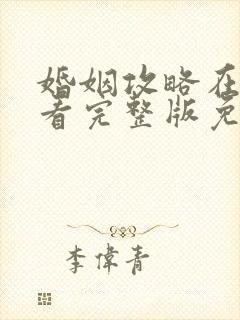 婚姻攻略在
看完整版免
李偉青